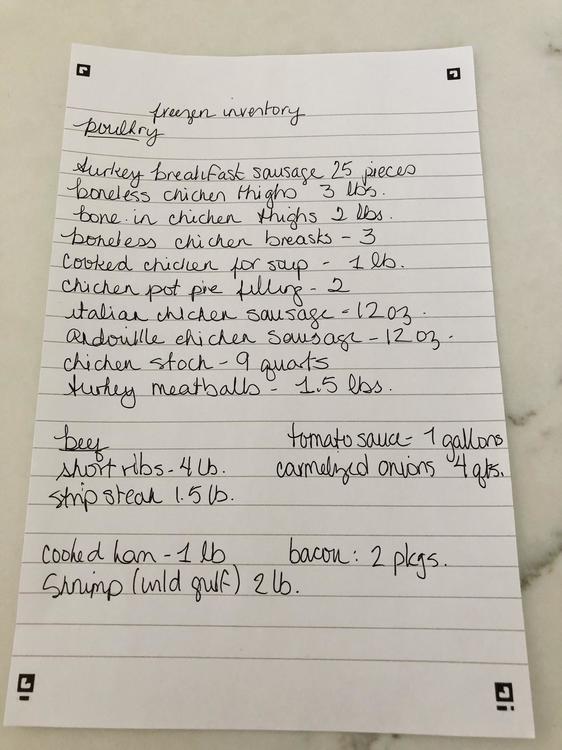 freezer inventory
poultry
turkey breakfast sausage 25 pieces
boneless chicken thighs 3 lbs.
bone-in chicken thighs 2 lbs.
boneless chicken breasts - 3
cooked chicken for soup - 1 lb.
chicken pot pie filling - 2
italian chicken sausage - 12 oz.
andouille chicken sausage - 12 oz.
chicken stock - 9 quarts
turkey meatballs - 1.5 lbs.
beef tomato sauce - 1 gallons
short ribs - 4 lb. carmelized onions 4 qts.
strip steak 1.5 lb.
cooked ham - 1 lb bacon: 2 pkgs.
Shrimp (wild gulf) 2 lb.